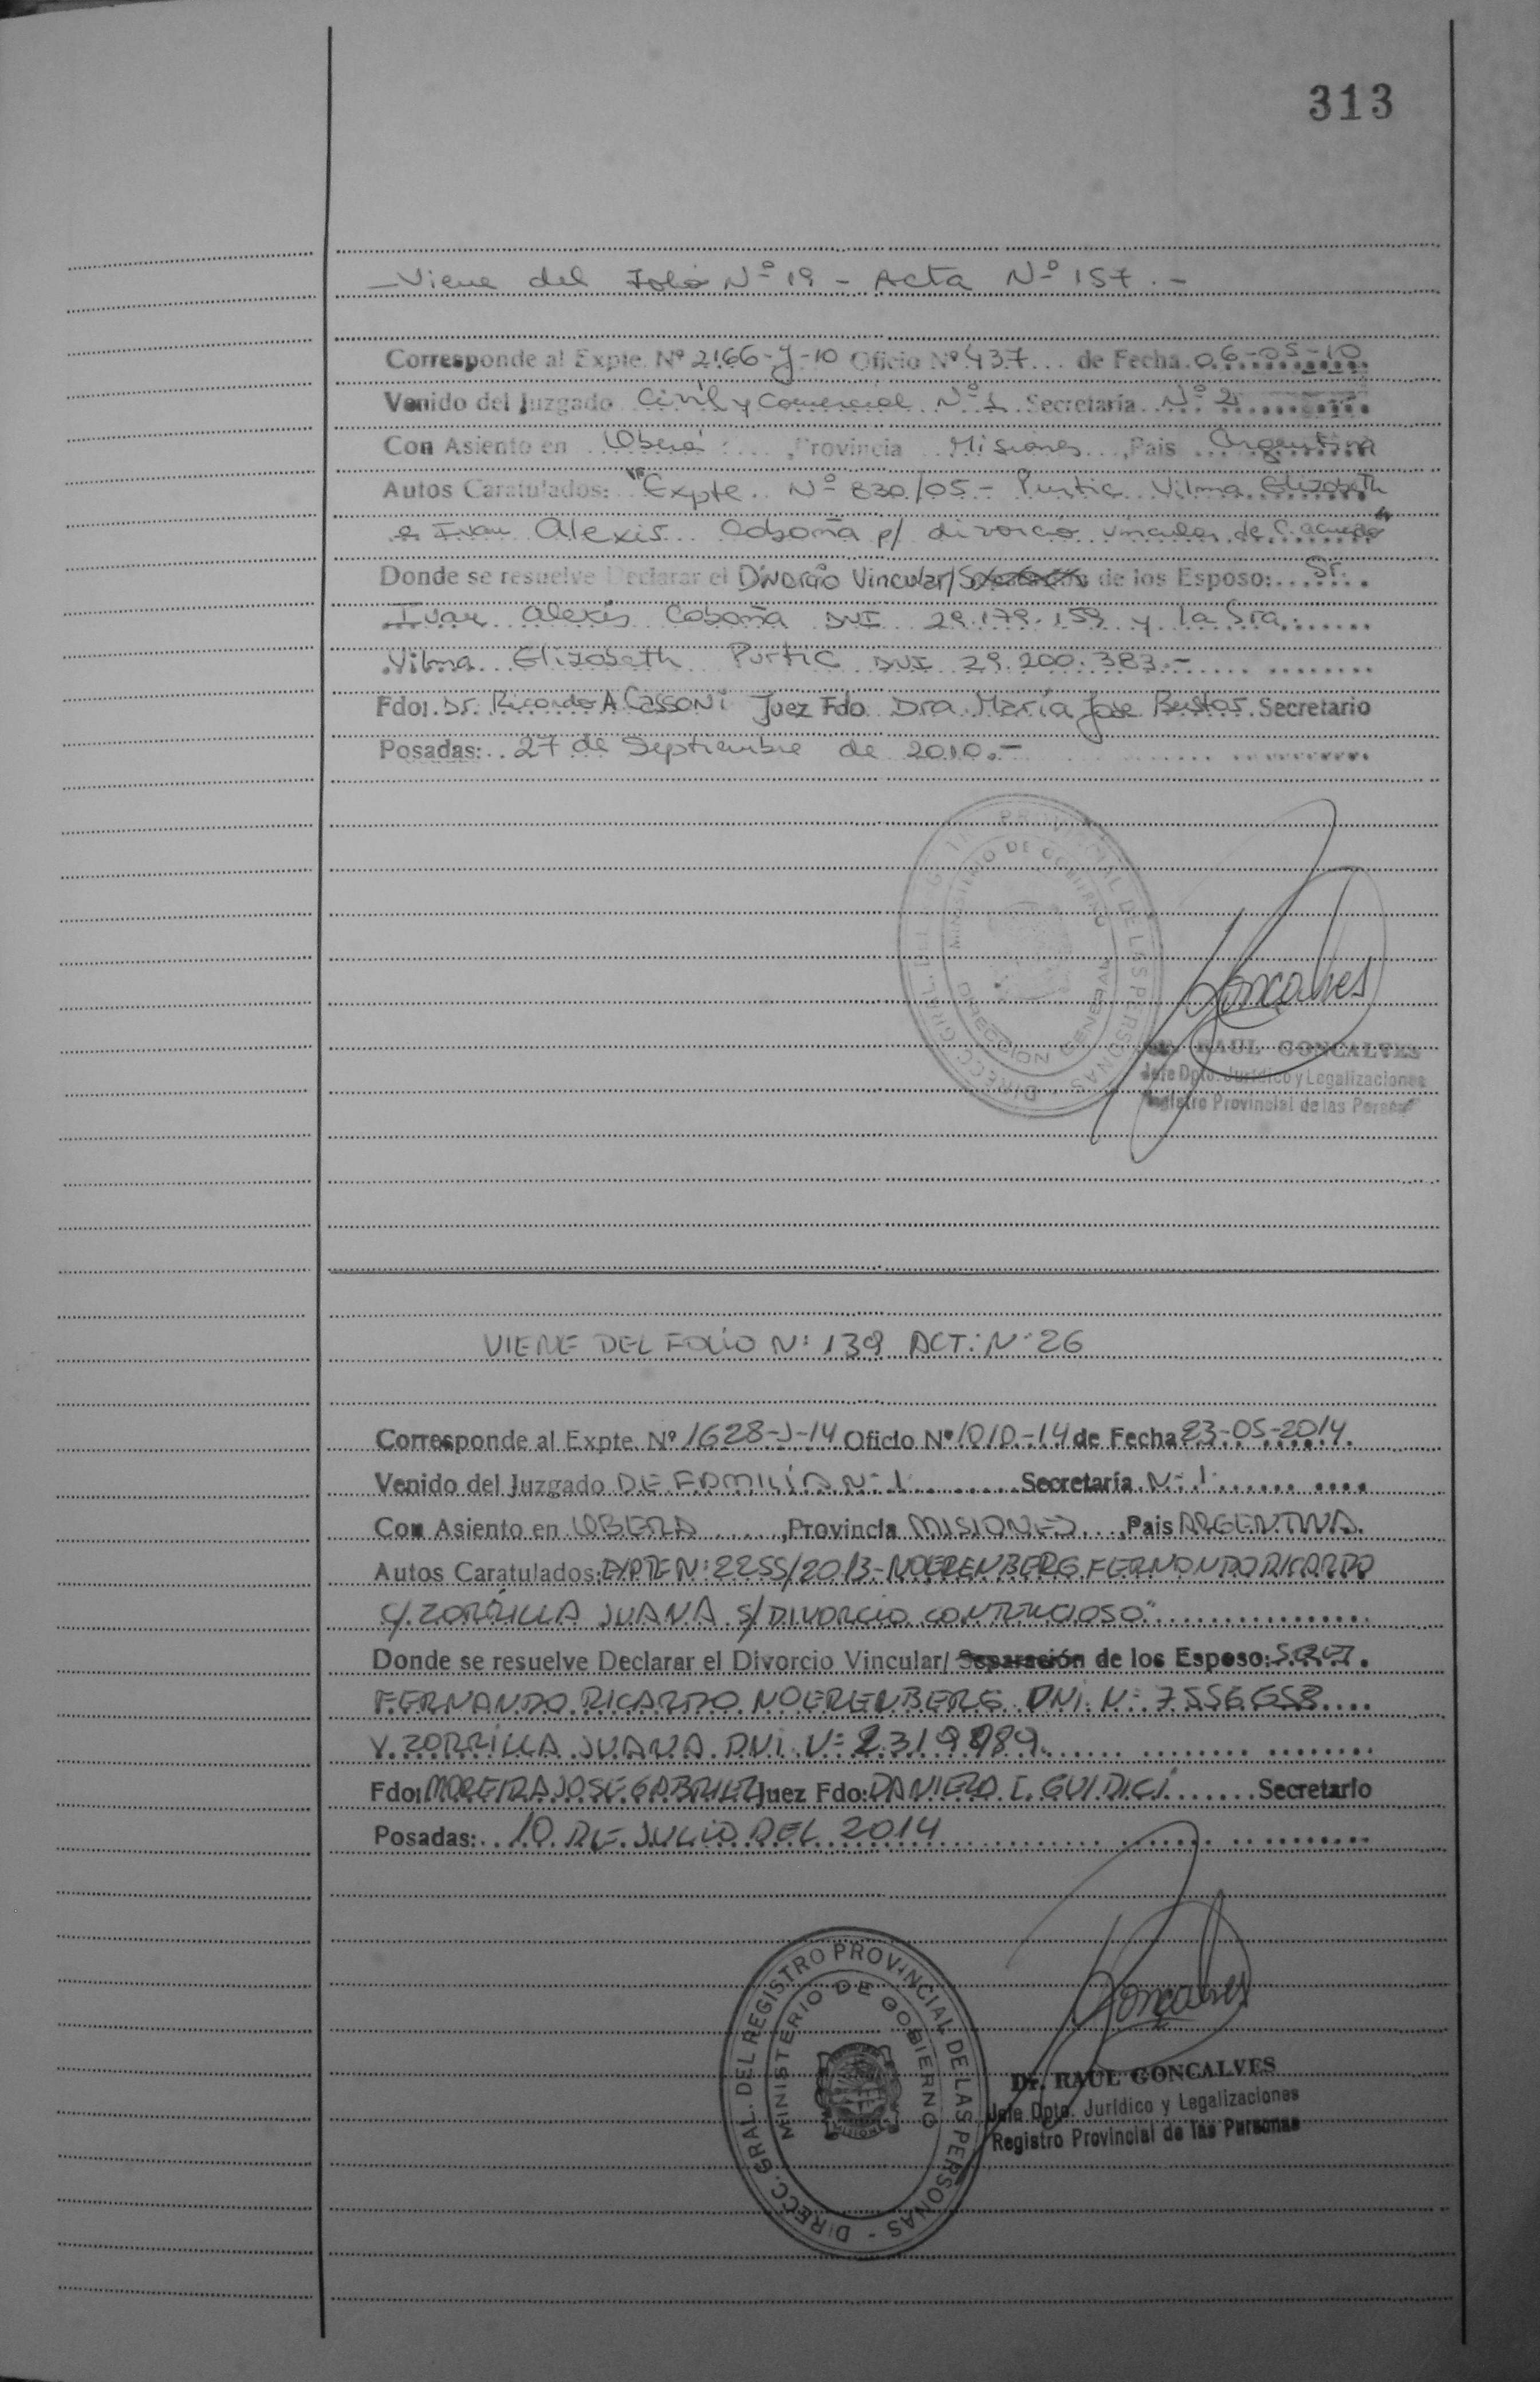 313
Viene del Folio Nº 19 - Acta Nº 157.-
Corresponde al Expte. Nº 2166-J-10 Oficio Nº 437... de Fecha 06-05-10
Venido del Juzgado Civil y Comercial Nº 1 Secretaria Nº 2
Con Asiento en Oberá, Provincia Misiones, Pais Argentina
Autos Caratulados: "Expte. Nº 830/05 - Vilma Elizabeth
Ivan Alexis p/ divorcio vincular de C. acuerdo"
Donde se resuelve Declarar el Divorcio Vincular/ de los Esposo: Sr.
Ivan Alexis DNI 29.179.159 y la Sra.
Vilma Elizabeth DNI 29.200.383.-
Fdo: Dr. Ricardo A. Cassoni Juez Fdo Dra. María Jose Bustos. Secretario
Posadas: 27 de Septiembre de 2010.-
DIRECC. GRAL. DEL REGISTRO PROVINCIAL DE LAS PERSONAS
MINISTERIO DE GOBIERNO
DIRECCION GENERAL
Goncalves
Dr. RAUL GONCALVES
Jefe Dpto. Jurídico y Legalizaciones
Registro Provincial de las Personas
VIENE DEL FOLIO N: 139 ACT: N: 26
Corresponde al Expte. Nº 1628-J-14 Oficio Nº 1010-14 de Fecha 23-05-2014.
Venido del Juzgado DE FAMILIA N: 1 Secretaría N: 1
Con Asiento en OBERA, Provincia MISIONES, Pais ARGENTINA.
Autos Caratulados: EXPTE N: 2255/2013-NOERENBERG FERNANDO RICARDO
C/ ZORRILLA JUANA S/ DIVORCIO CONTENCIOSO"
Donde se resuelve Declarar el Divorcio Vincular/ Separación de los Esposo:
FERNANDO RICARDO NOERENBERG DNI. N: 7.556.658
Y ZORRILLA JUANA DNI. N:
Fdo: MOREIRA JOSE GABRIEL Juez Fdo: DANIELA I. GUIDICI Secretario
Posadas: 10 DE JULIO DEL 2014
DIRECC. GRAL. DEL REGISTRO PROVINCIAL DE LAS PERSONAS
MINISTERIO DE GOBIERNO
MISIONES
Goncalves
Dr. RAUL GONCALVES
Jefe Dpto. Jurídico y Legalizaciones
Registro Provincial de las Personas